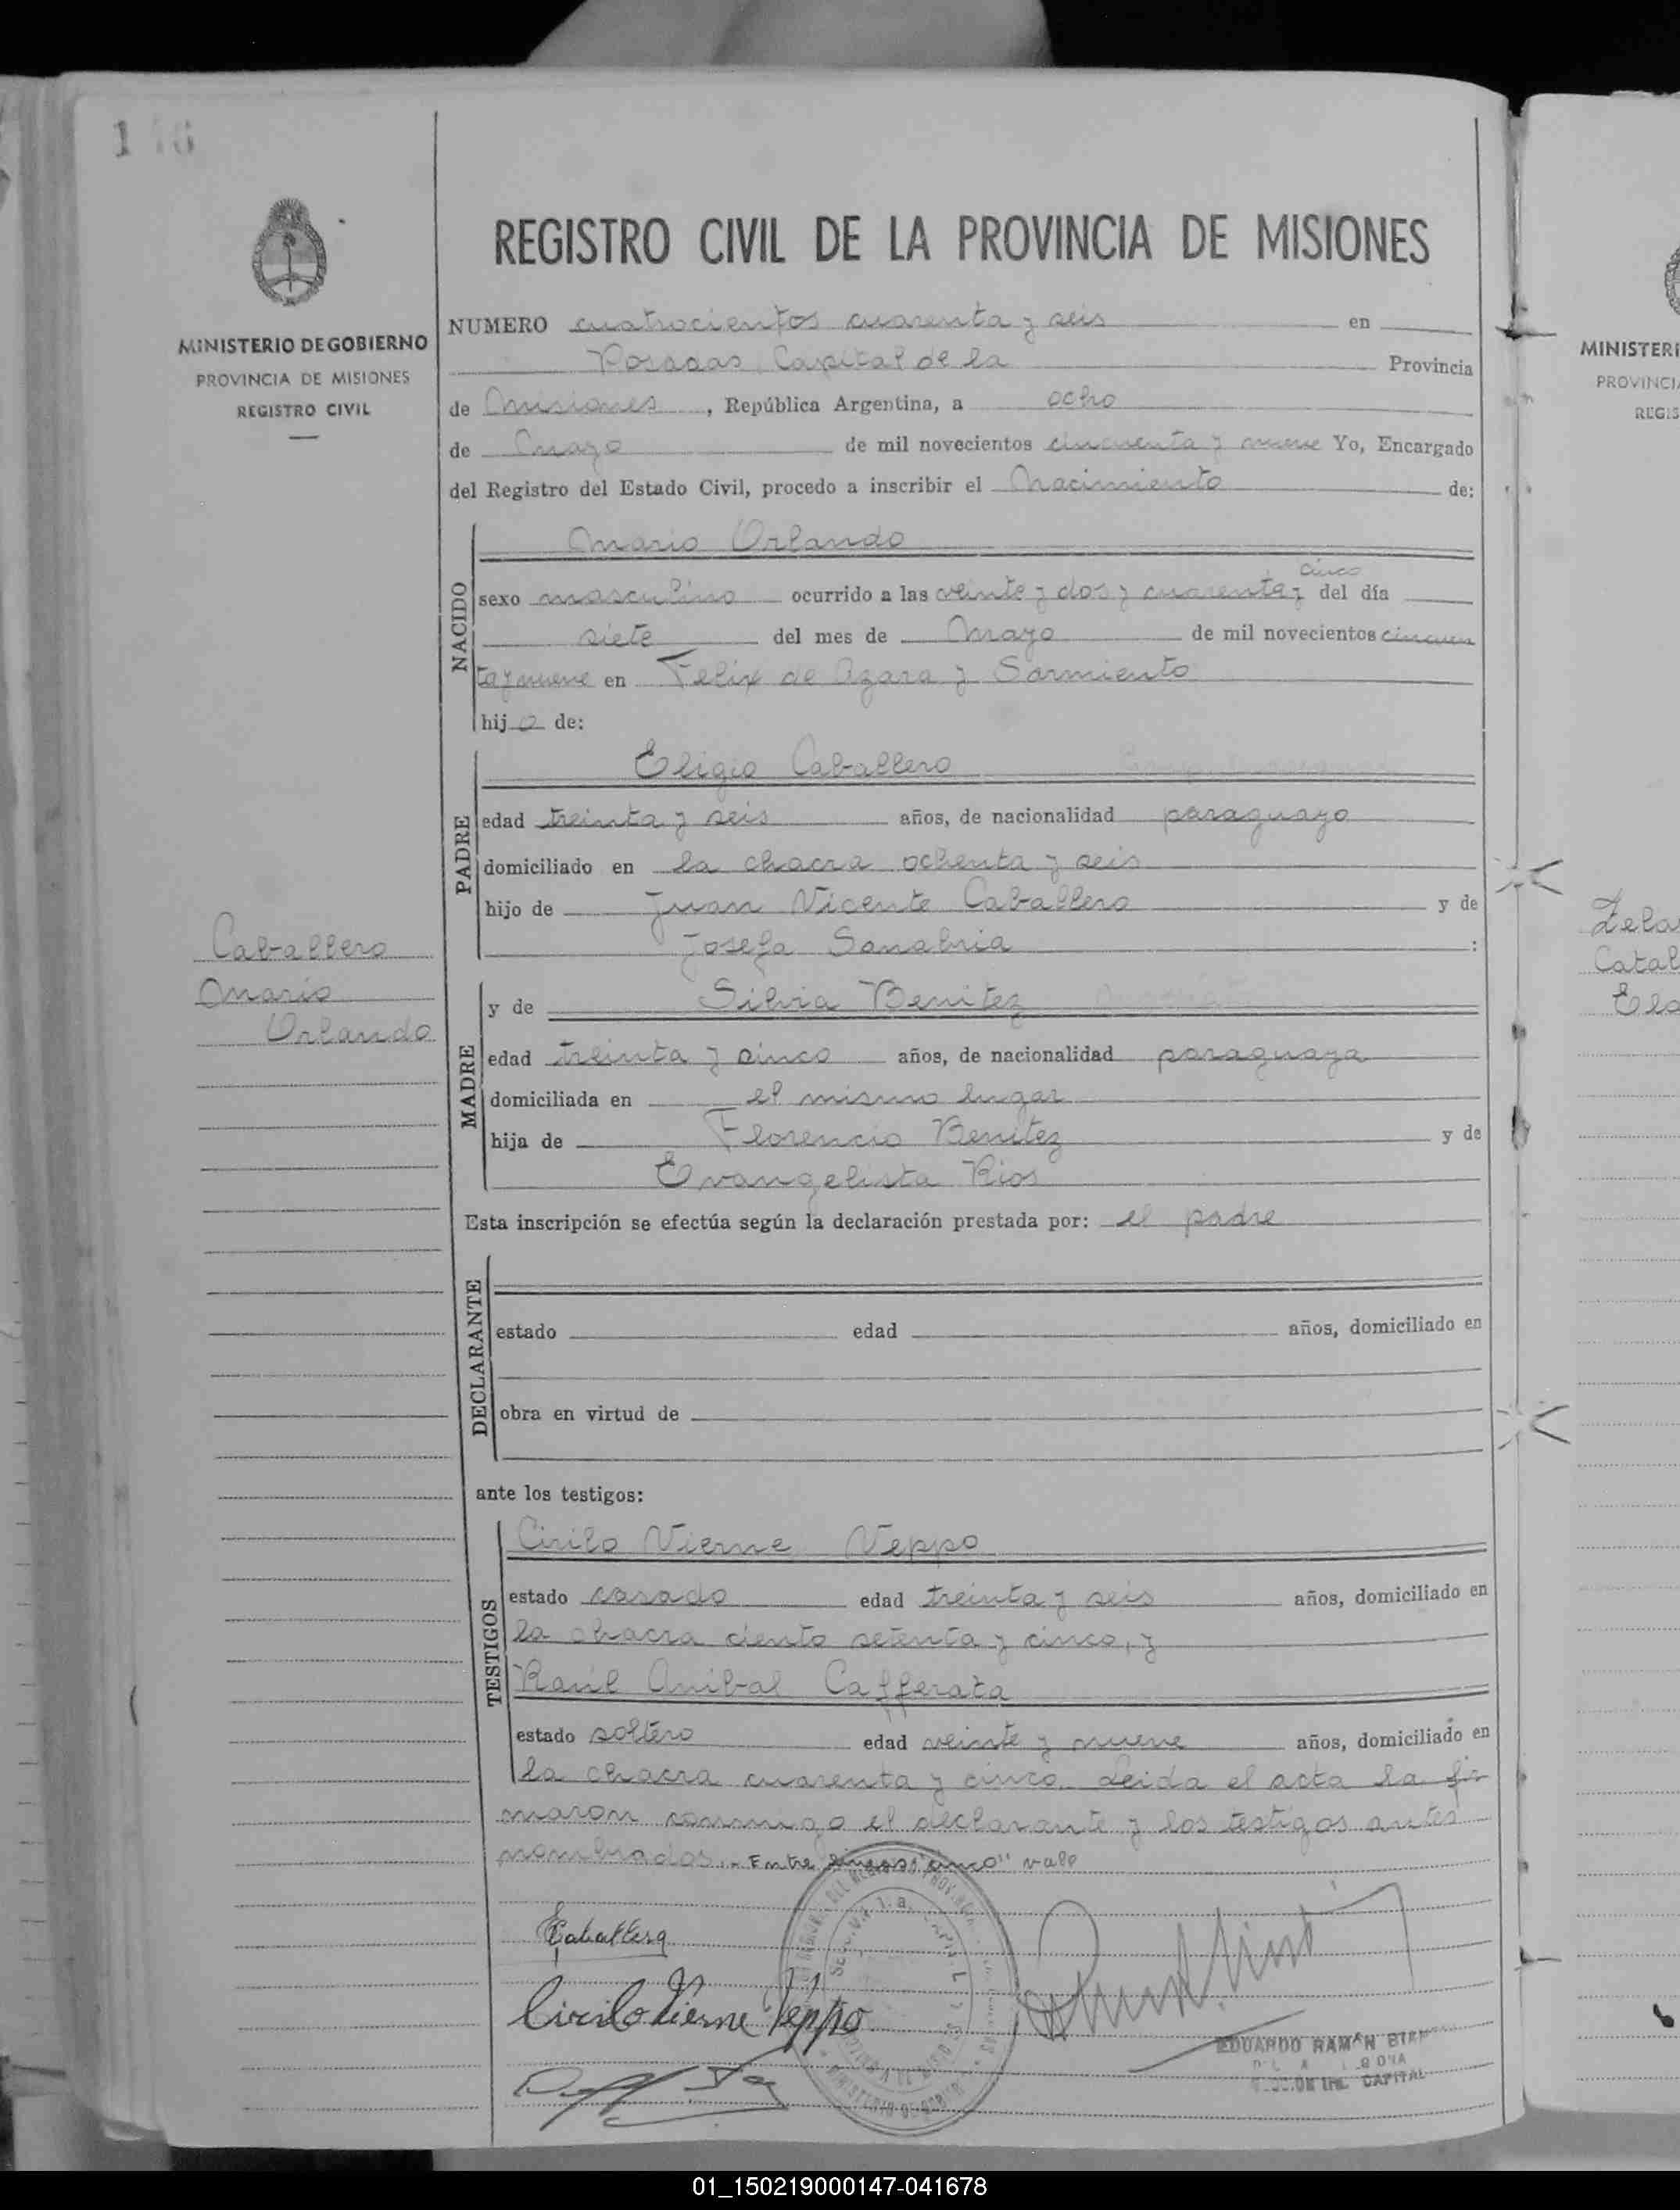 REGISTRO CIVIL DE LA PROVINCIA DE MISIONES
MINISTERIO DE GOBIERNO
PROVINCIA DE MISIONES
REGISTRO CIVIL
NUMERO cuatrocientos cuarenta y seis en
Posadas, Capital de la Provincia
de Misiones, República Argentina, a ocho
de Mayo de mil novecientos cincuenta y nueve Yo, Encargado
del Registro del Estado Civil, procedo a inscribir el Nacimiento de:
NACIDO
Mario Orlando
cinco
sexo masculino ocurrido a las veinte y dos y cuarenta y del día
siete del mes de Mayo de mil novecientos cincuen
ta y nueve en Felix de Azara y Sarmiento
hijo de:
PADRE
Eligio Caballero
edad treinta y seis años, de nacionalidad paraguayo
domiciliado en la chacra ochenta y seis
hijo de Juan Vicente Caballero y de
Josefa Sanabria :
Caballero
Mario
Orlando
MADRE
y de Silvia Benitez
edad treinta y cinco años, de nacionalidad paraguaya
domiciliada en el mismo lugar
hija de Florencio Benitez y de
Evangelista Rios
Esta inscripción se efectúa según la declaración prestada por: el padre
DECLARANTE
estado edad años, domiciliado en
obra en virtud de
ante los testigos:
TESTIGOS
Cirilo Vierne Veppo
estado casado edad treinta y seis años, domiciliado en
la chacra ciento setenta y cinco, y
Raúl Anibal Cafferata
estado soltero edad veinte y nueve años, domiciliado en
la chacra cuarenta y cinco. Leida el acta la fir
maron conmigo el declarante y los testigos antes
nombrados.- Entre lineas: "cinco" vale
ECaballero
Cirilo Vierne Veppo
EDUARDO RAMON
CAPITAL
MINISTERI
PROVINCI
REGIS
Zela
Catal
Ela
01_150219000147-041678